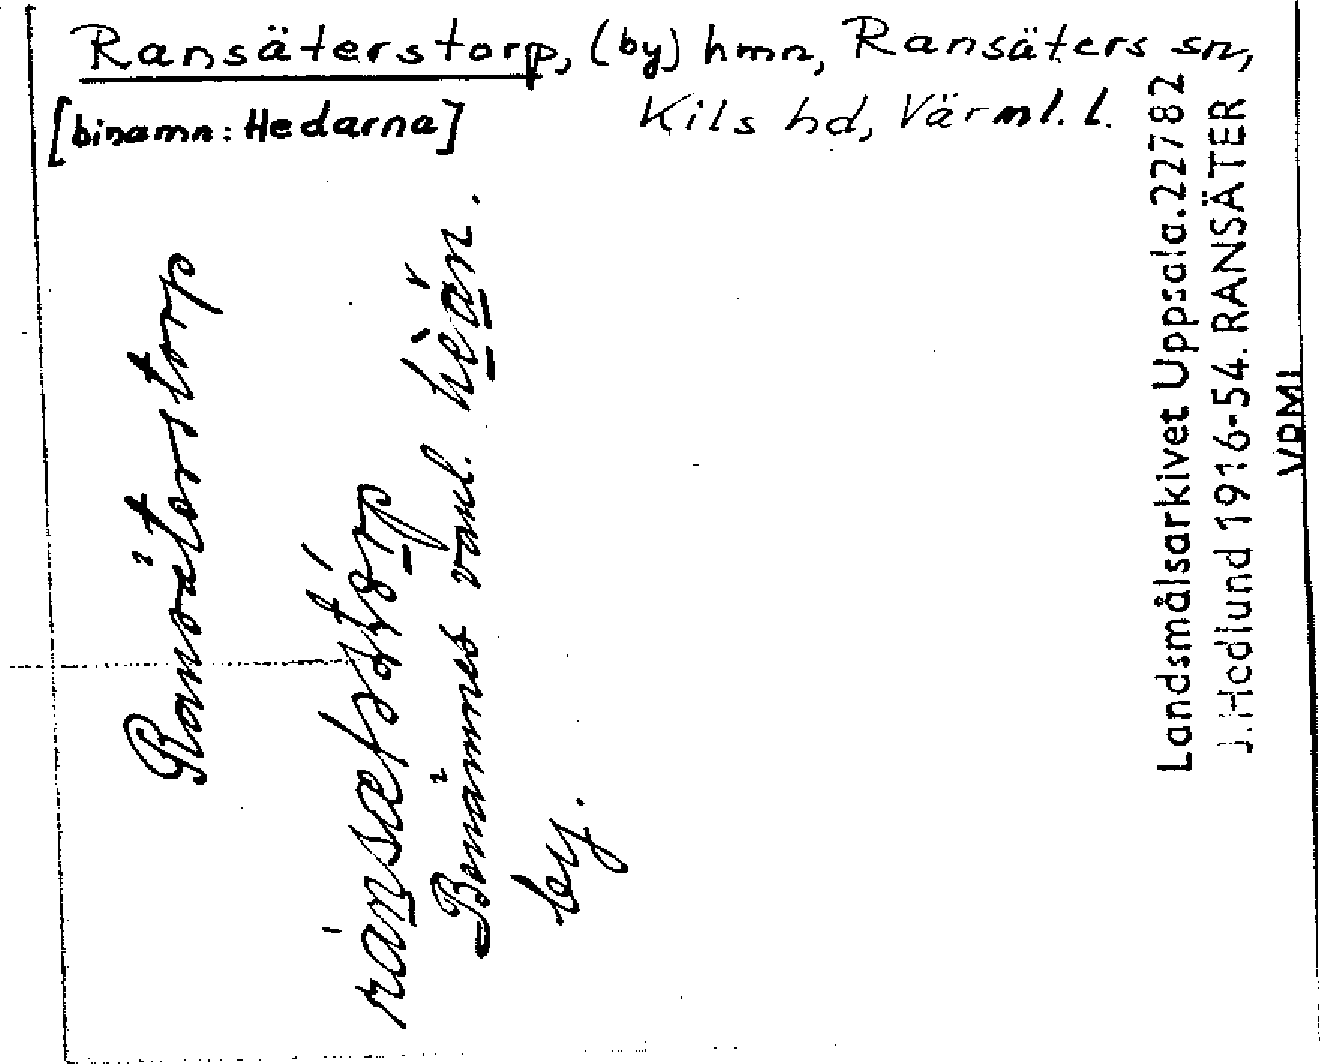 Ransäterstorp, (by) hmn, Ransäters sn,
[binamn: Hedarna] Kils hd, Värml. l.
Ransäterstorp
Benämnes vanl.
by.
Landsmålsarkivet Uppsala. 22782
J. Hedlund 1916-54. RANSÄTER
VRML